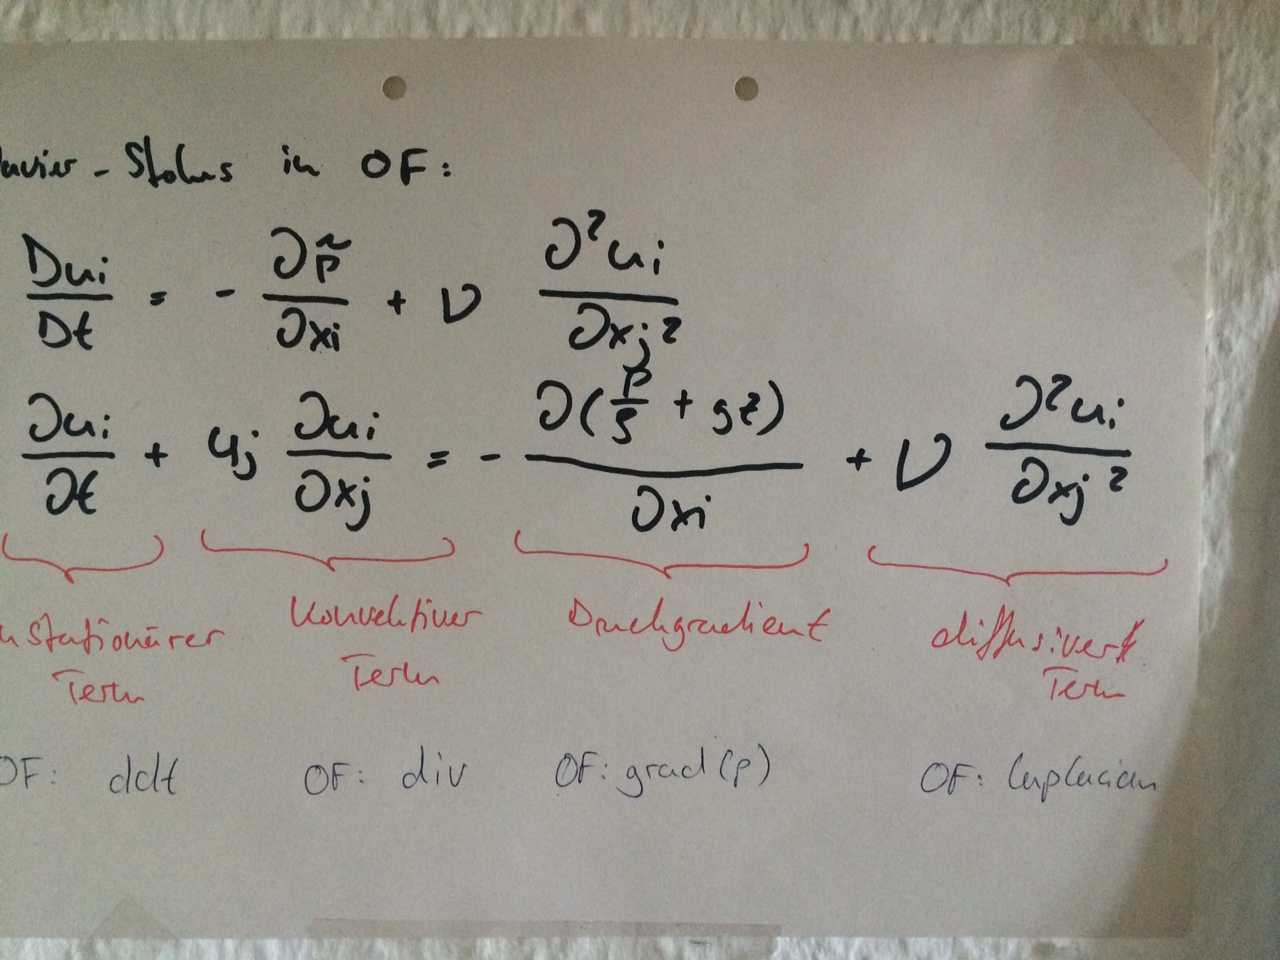 avier - Stokes in OF:
Dui/Dt = - ∂p̃/∂xi + ν ∂²ui/∂xj²
∂ui/∂t + uj ∂ui/∂xj = - ∂(p/ρ + gz)/∂xi + ν ∂²ui/∂xj²
nstationärer Term
Konvektiver Term
Druckgradient
diffusiver Term
OF: ddt
OF: div
OF: grad(p)
OF: laplacian